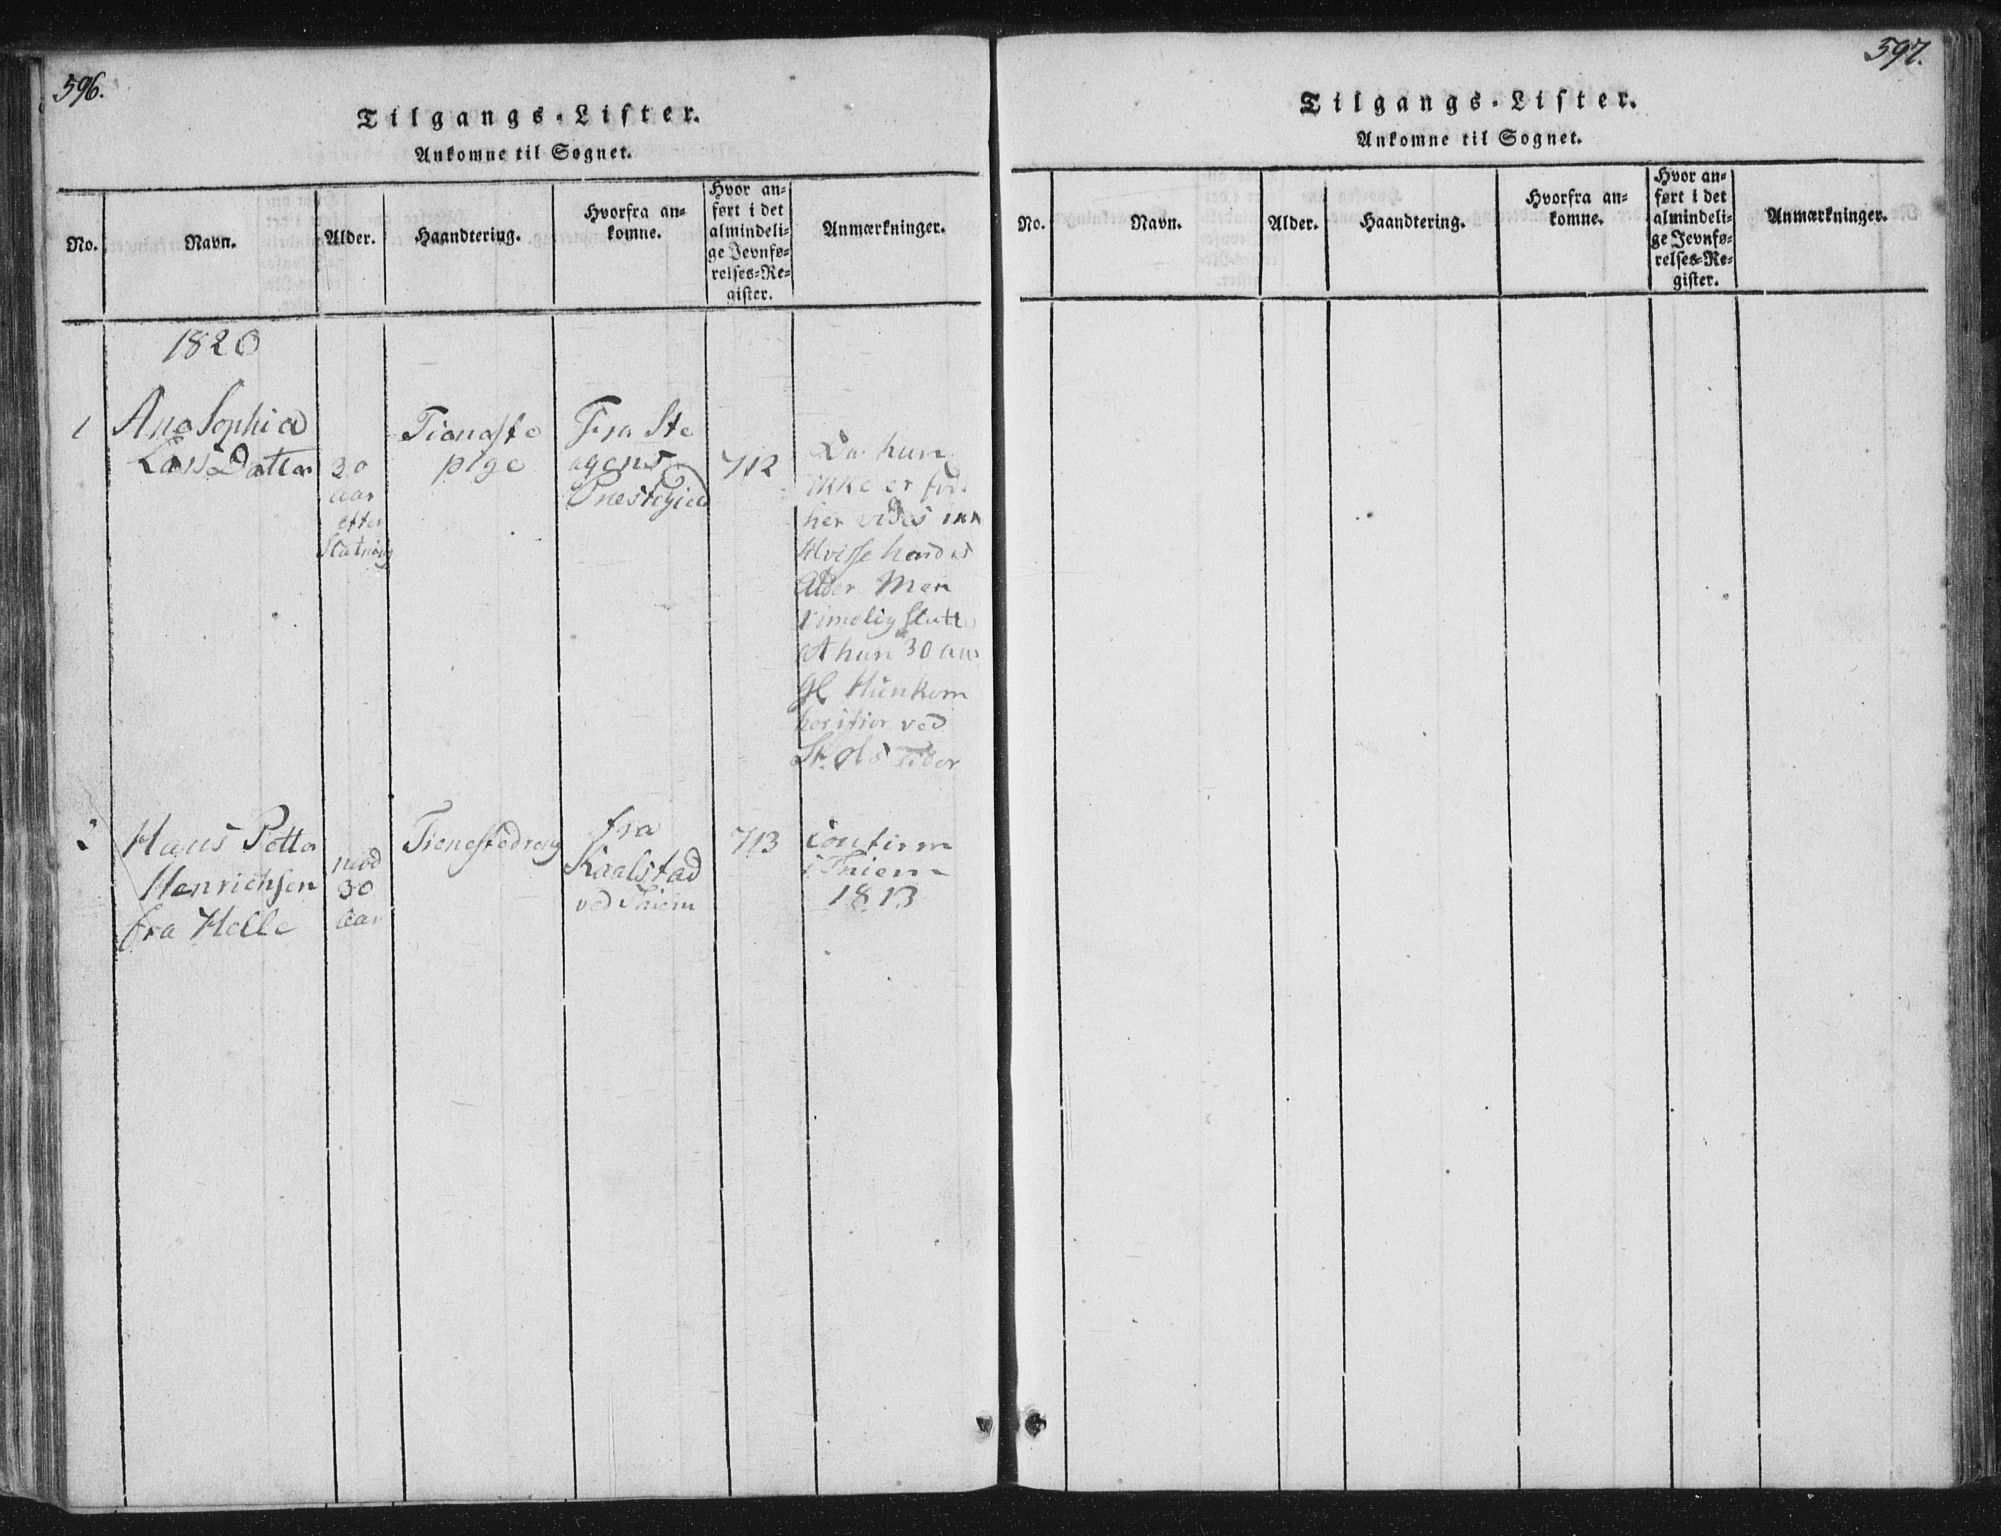 596.
Tilgangs-Lister.
Ankomne til Sognet.
No.
Navn.
Alder.
Haandtering.
Hvorfra an=
komne.
Hvor an=
ført i det
almindeli=
ge Jevnfø=
relses=Re=
gister.
Anmærkninger.
1820
1
Ana Sophia
Lars Datter
30
aar
efter
Slutning
Tienaste
pige
Fra Ste
agens
Præstegied
712
Da hun
ikke er fød
her vides ikk
tilvisse hendes
Alder Men
rimelig slutte
at hun 30 aar
gl Hun kom
her ifior ved
St. Ols Tider
2
Hans Petter
Henrichsen
fra Helle
mod
30
aar
Tienestedreng
fra
Kaalstad
ved Skiem
713
Confirm
i Skiem
1813
597.
Tilgangs-Lister.
Ankomne til Sognet.
No.
Navn.
Alder.
Haandtering.
Hvorfra an=
komne.
Hvor an=
ført i det
almindeli=
ge Jevnfø=
relses=Re=
gister.
Anmærkninger.